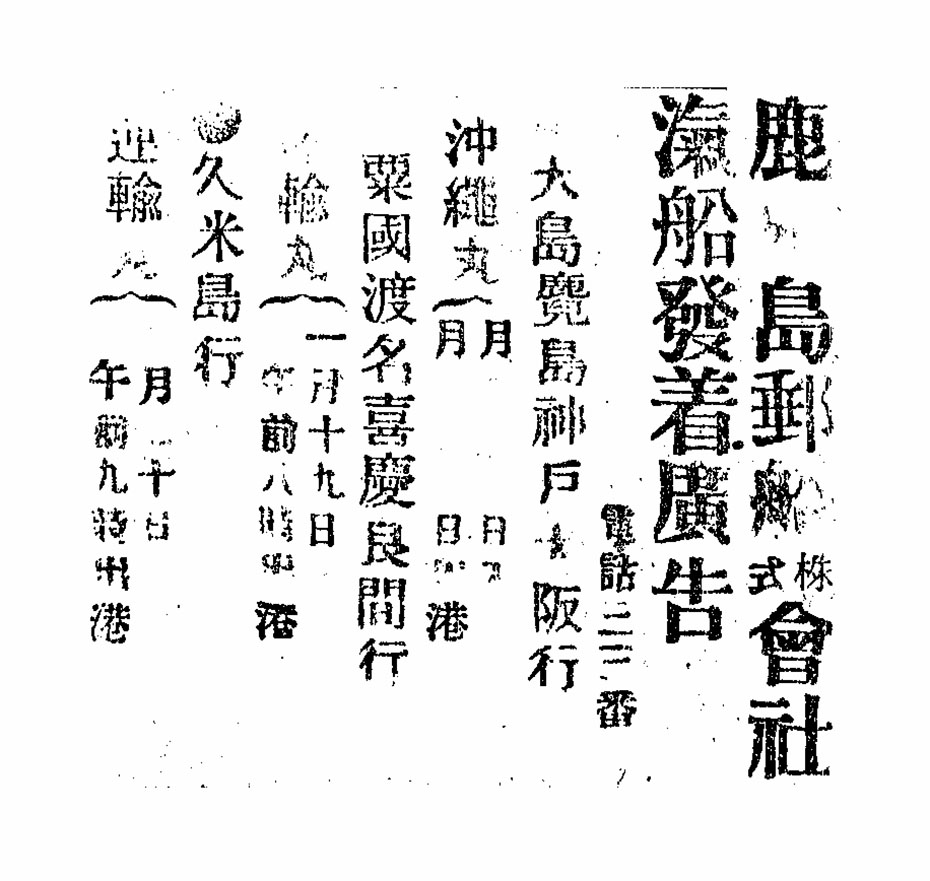 鹿 島郵船株式會社
滊船發着廣告
電話三三番
大島覽島神戶大阪行
沖繩丸
月 日
月 日 港
粟國渡名喜慶良間行
輸丸
一月十九日
午前八時出港
久米島行
運輸丸
月二十日
午前九時出港